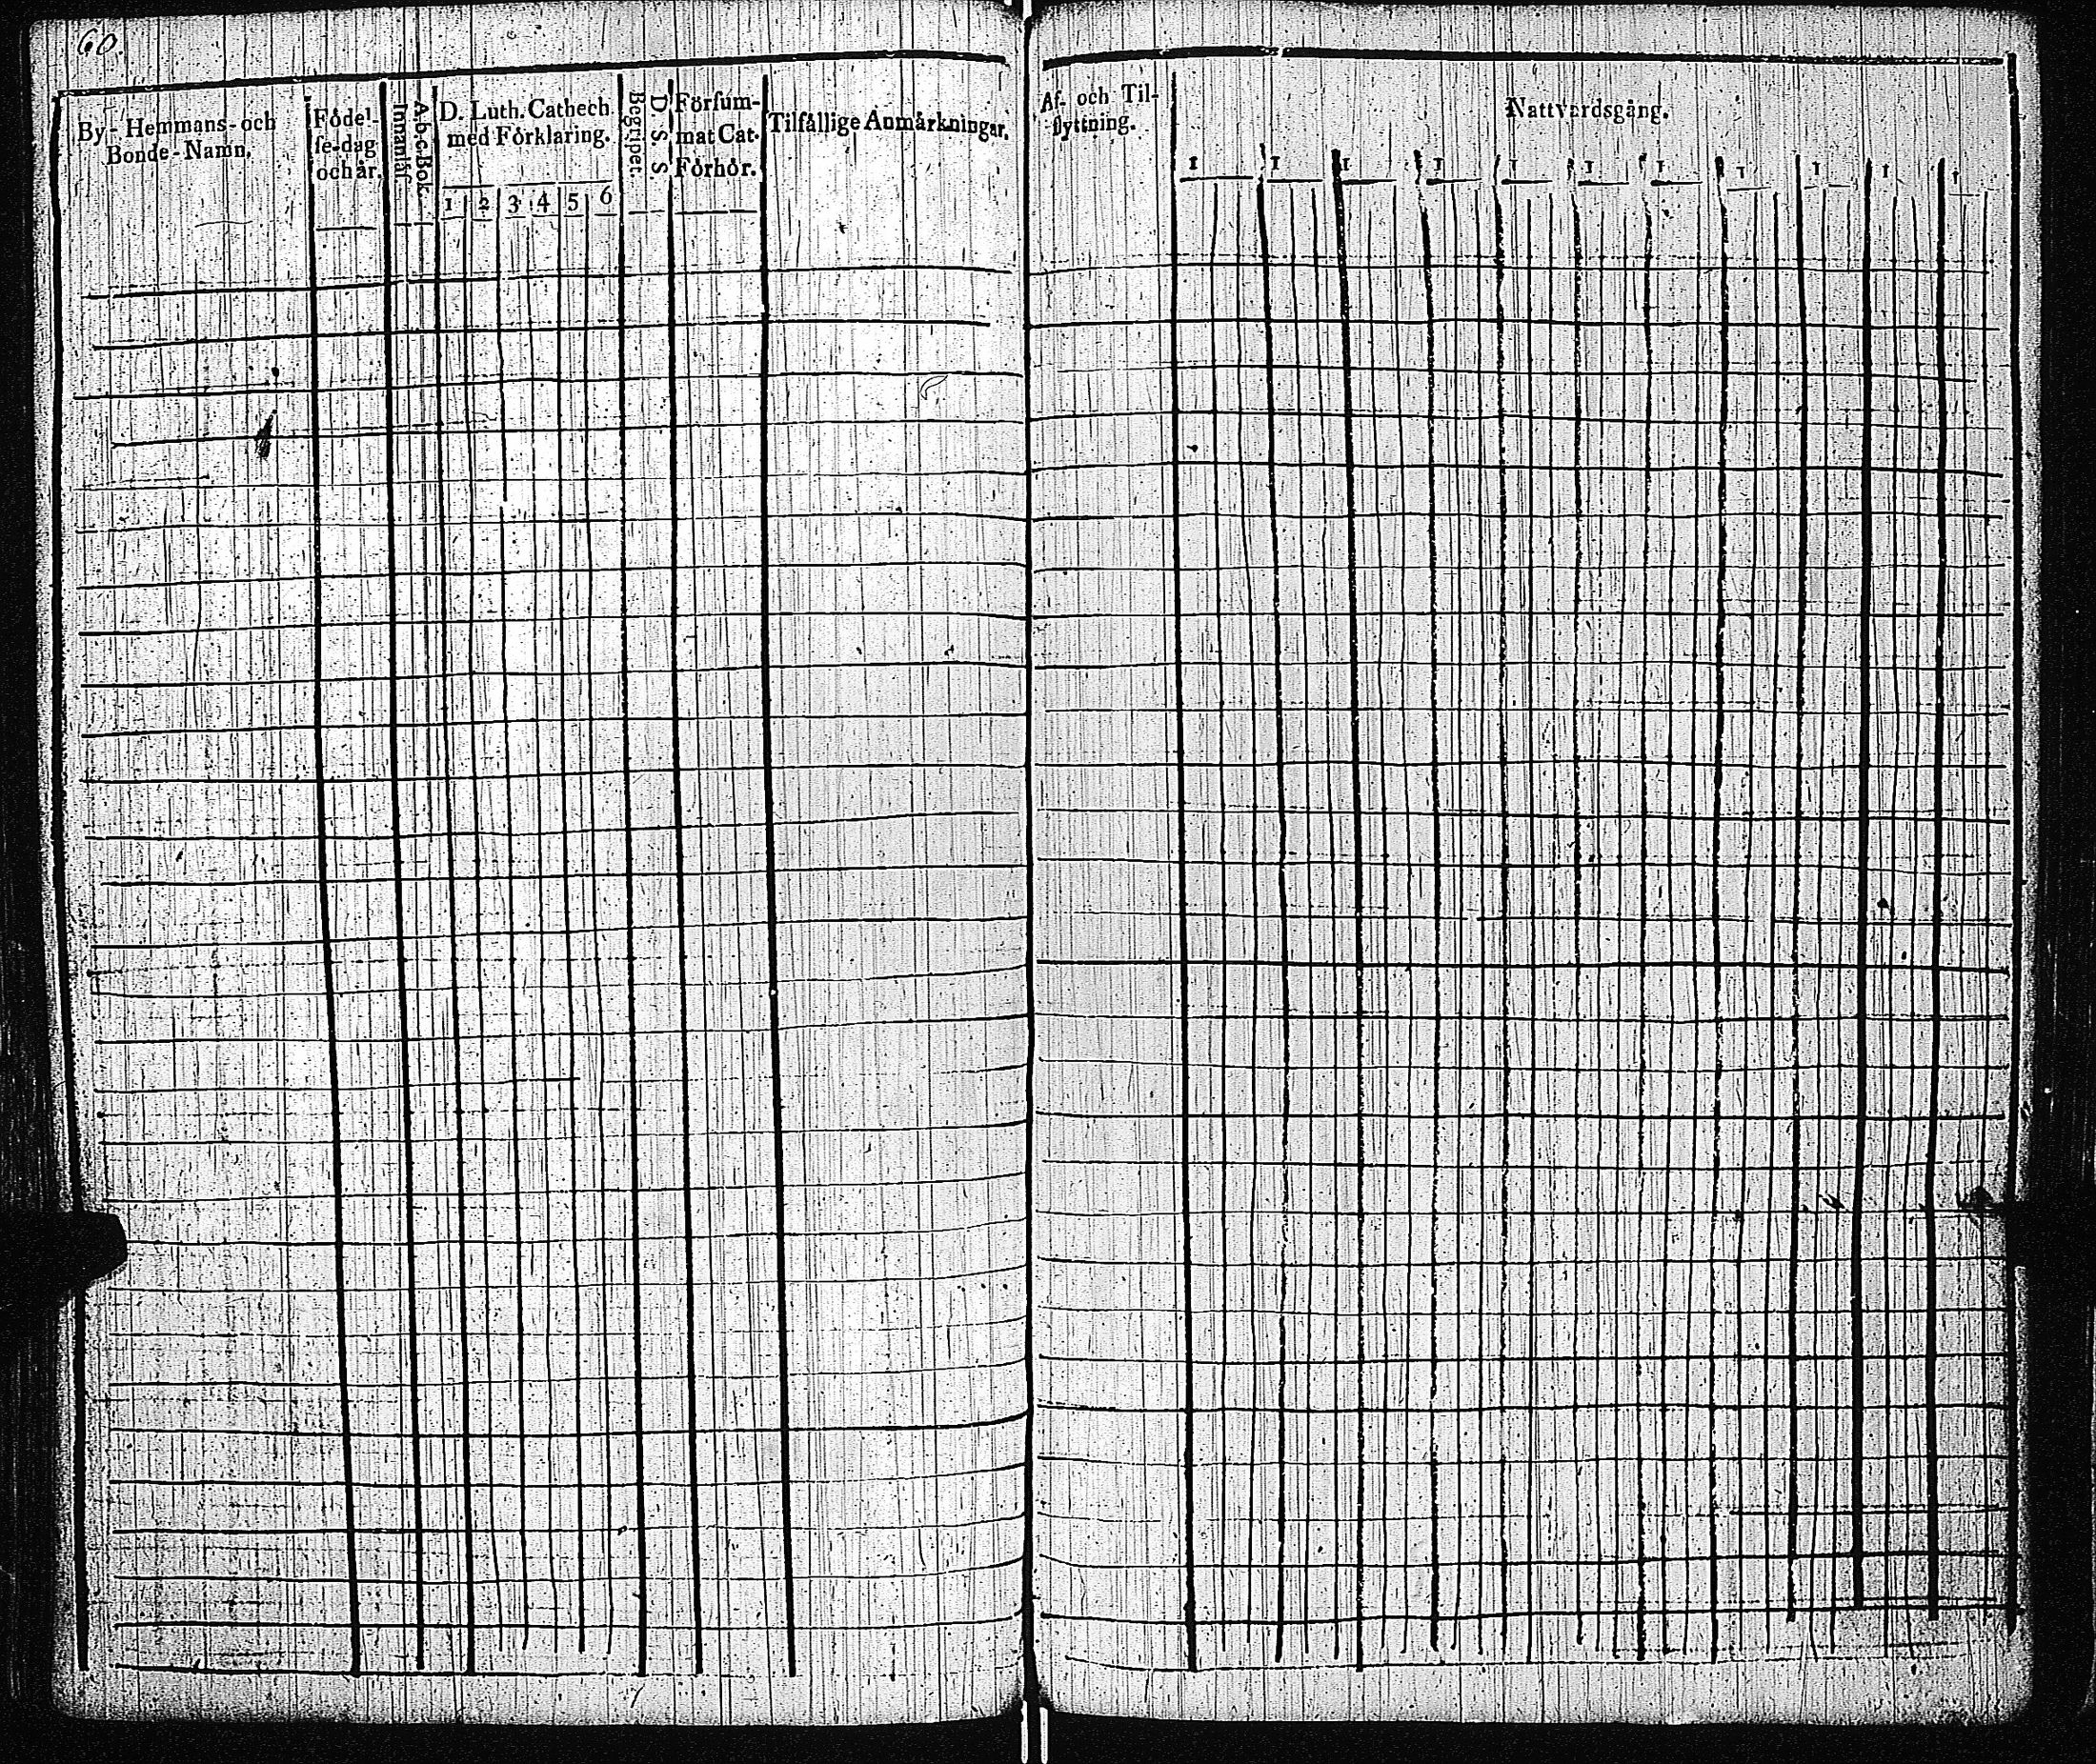 60.
By- Hemmans- och
Bonde-Namn.
Födel-
se-dag
och år.
A.b.c. Bok.
Innanläs.
D. Luth. Cathech.
med Förklaring.
1 2 3 4 5 6
D. S. S.
Begripet.
Försum-
mat Cat.
Förhör.
Tilfällige Anmärkningar.
Af- och Til-
flyttning.
Nattvardsgång.
1 1 1 1 1 1 1 1 1 1 1